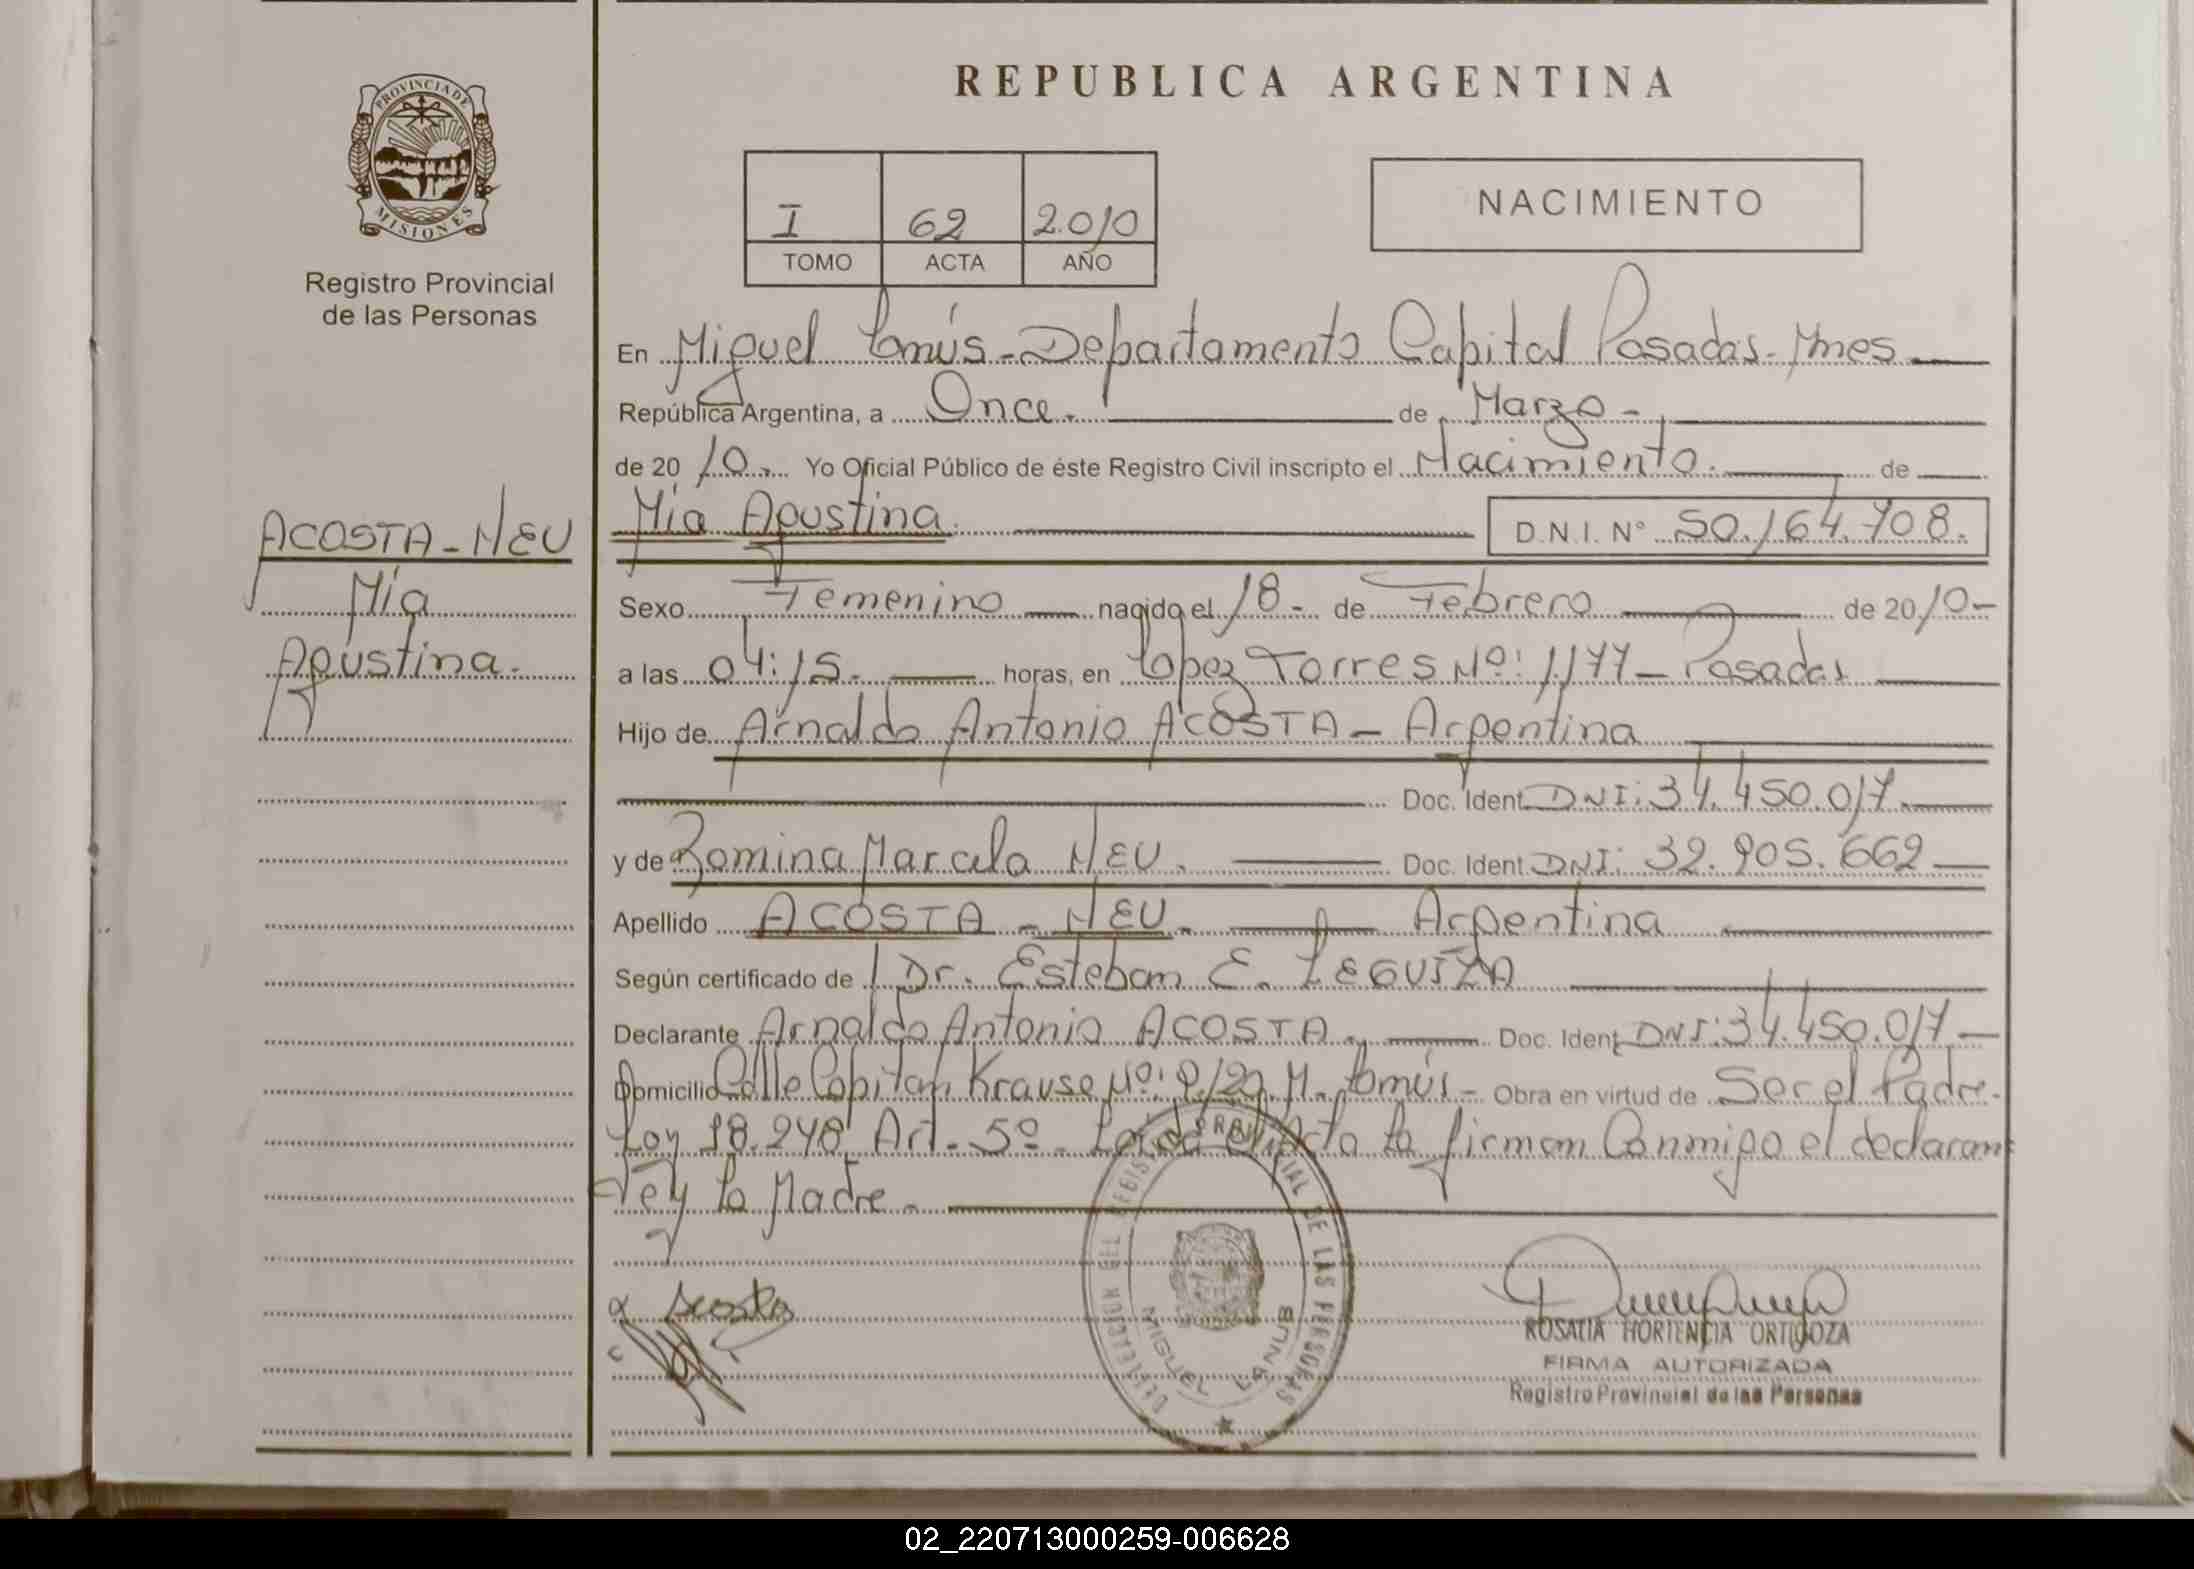 PROVINCIA DE
MISIONES
Registro Provincial
de las Personas
ACOSTA - NEU
Mía
Agustina.
REPUBLICA ARGENTINA
I 62 2.010
TOMO ACTA AÑO
NACIMIENTO
En Miguel Lanús - Departamento Capital Posadas - Mnes
República Argentina, a Once. de Marzo -
de 20 10.- Yo Oficial Público de éste Registro Civil inscripto el Nacimiento. de
Mía Agustina. D.N.I. N° 50.164.708.
Sexo Femenino nacido el 18 - de Febrero de 20 10 -
a las 04:15. horas, en López Torres Nº: 1177 - Posadas
Hijo de Arnaldo Antonio ACOSTA - Argentina
Doc. Ident. DNI: 34.450.017.
y de Romina Marcela NEU. Doc. Ident. DNI: 32.905.662
Apellido ACOSTA - NEU. Argentina
Según certificado de Dr. Esteban E. LEGUIZA
Declarante Arnaldo Antonio ACOSTA. Doc. Ident. DNI: 34.450.017
Domicilio Calle Capitan Krause Nº: M. Lanús - Obra en virtud de Ser el Padre.
Ley 18.248 Art. 5º. Leída el Acta la firman Conmigo el declaran
te y la Madre.
Acosta
DELEGACION DEL REGISTRO PROVINCIAL DE LAS PERSONAS
MIGUEL LANUS
ROSALIA HORTENCIA ORTIGOZA
FIRMA AUTORIZADA
Registro Provincial de las Personas
02_220713000259-006628